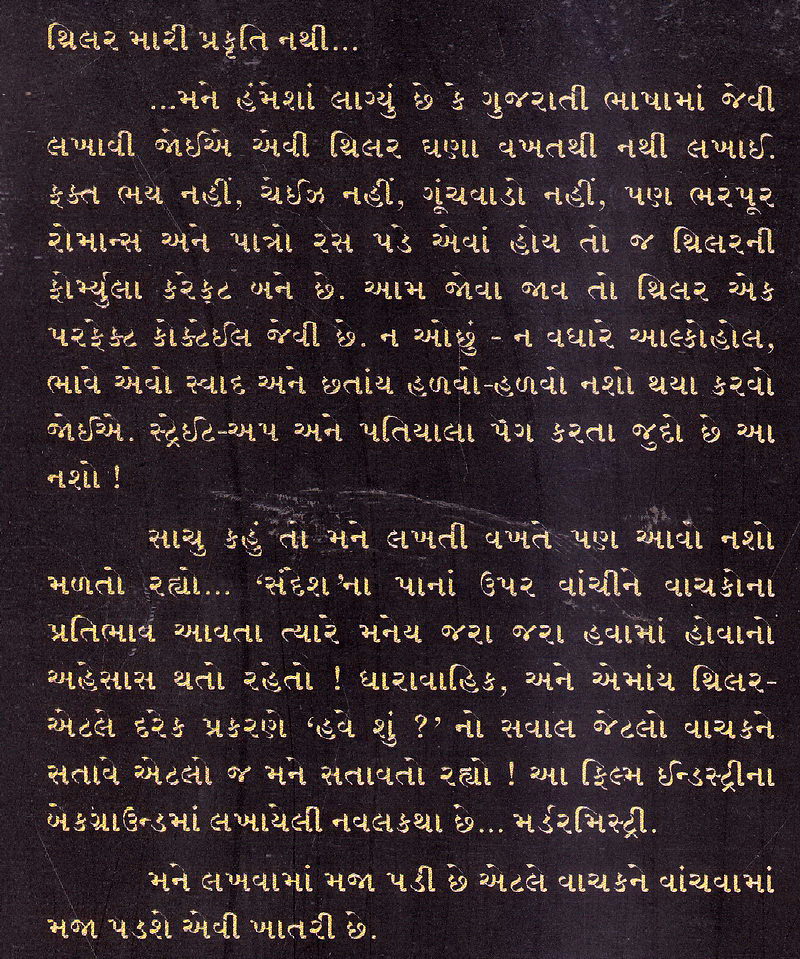 થ્રિલર મારી પ્રકૃતિ નથી...
...મને હંમેશાં લાગ્યું છે કે ગુજરાતી ભાષામાં જેવી
લખાવી જોઈએ એવી થ્રિલર ઘણા વખતથી નથી લખાઈ.
ફક્ત ભય નહીં, ચેઈઝ નહીં, ગૂંચવાડો નહીં, પણ ભરપૂર
રોમાન્સ અને પાત્રો રસ પડે એવાં હોય તો જ થ્રિલરની
ફોર્મ્યુલા કરેક્ટ બને છે. આમ જોવા જાવ તો થ્રિલર એક
પરફેક્ટ કોક્ટેઈલ જેવી છે. ન ઓછું - ન વધારે આલ્કોહોલ,
ભાવે એવો સ્વાદ અને છતાંય હળવો-હળવો નશો થયા કરવો
જોઈએ. સ્ટ્રેઈટ-અપ અને પતિયાલા પેગ કરતા જુદો છે આ
નશો !
સાચુ કહું તો મને લખતી વખતે પણ આવો નશો
મળતો રહ્યો... ‘સંદેશ’ના પાનાં ઉપર વાંચીને વાચકોના
પ્રતિભાવ આવતા ત્યારે મનેય જરા જરા હવામાં હોવાનો
અહેસાસ થતો રહેતો ! ધારાવાહિક, અને એમાંય થ્રિલર-
એટલે દરેક પ્રકરણે ‘હવે શું ?’ નો સવાલ જેટલો વાચકને
સતાવે એટલો જ મને સતાવતો રહ્યો ! આ ફિલ્મ ઈન્ડસ્ટ્રીના
બેકગ્રાઉન્ડમાં લખાયેલી નવલકથા છે... મર્ડરમિસ્ટ્રી.
મને લખવામાં મજા પડી છે એટલે વાચકને વાંચવામાં
મજા પડશે એવી ખાતરી છે.